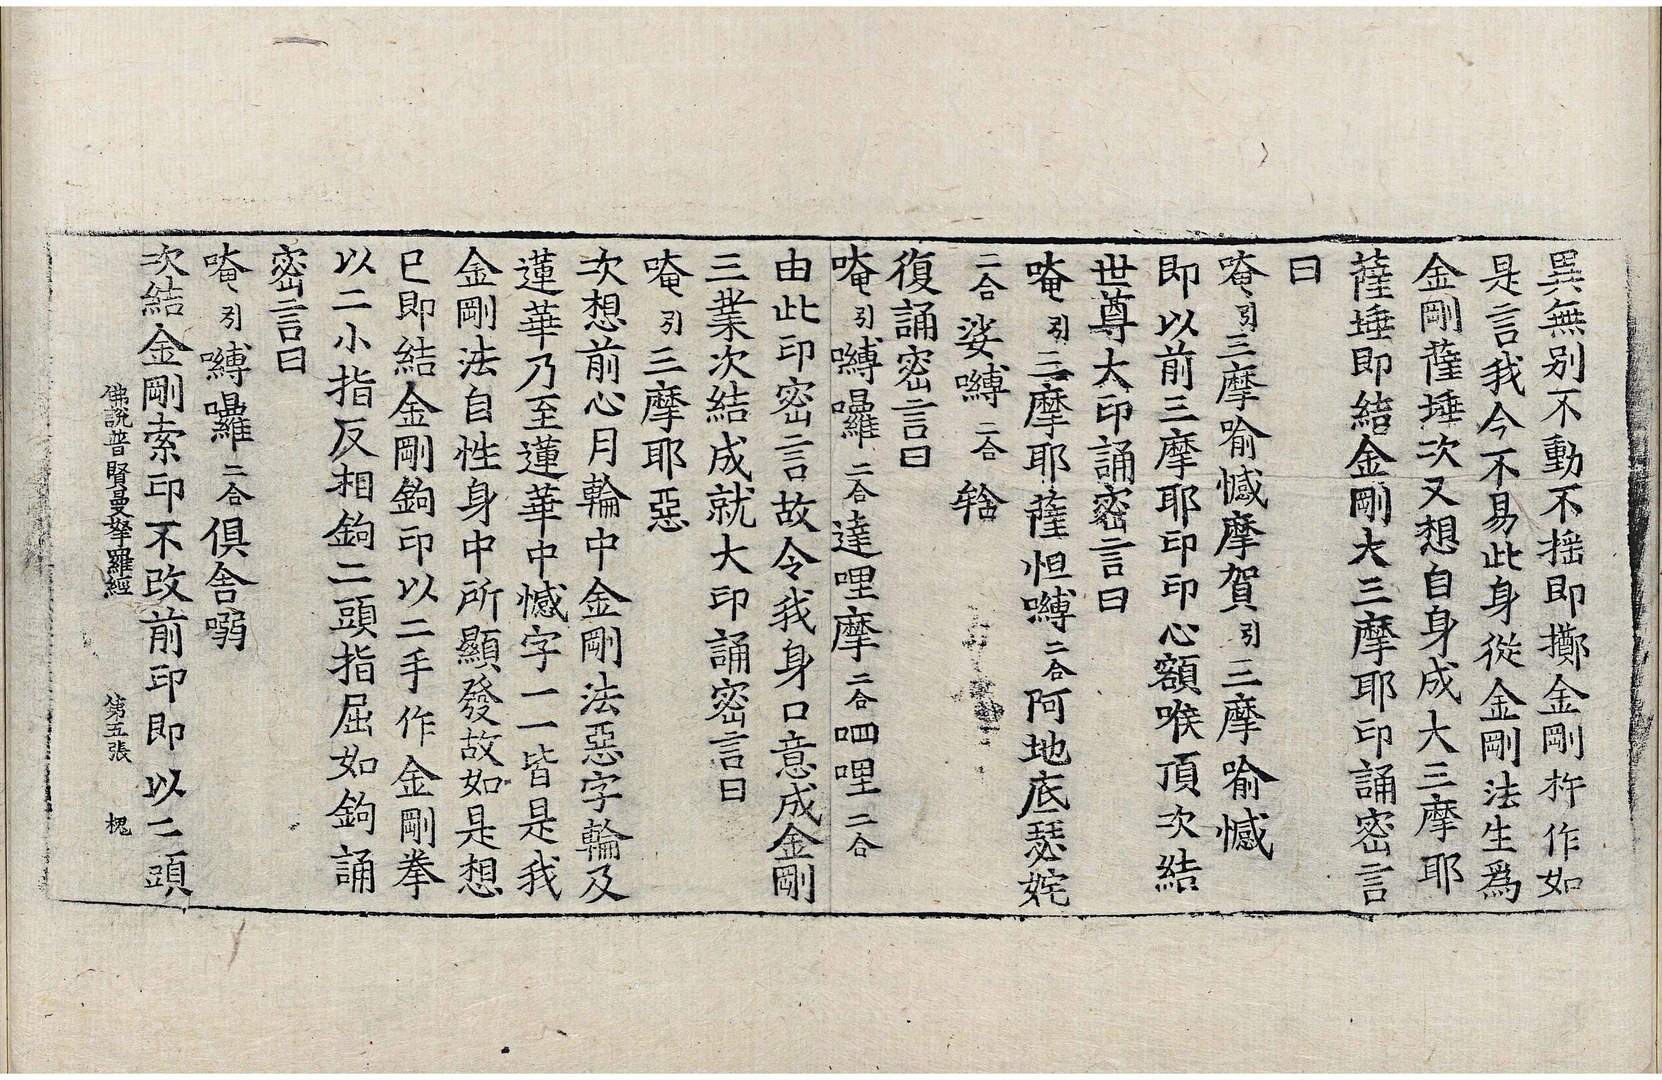 異無別不動不揺即擲金剛杵作如
是言我今不易此身從金剛法生爲
金剛薩埵次又想自身成大三摩耶
薩埵即結金剛大三摩耶印誦密言
曰
唵引三摩喻憾摩賀引三摩喻憾
即以前三摩耶印印心額喉頂次結
世尊大印誦密言曰
唵引三摩耶薩怛嚩二合阿地底瑟姹
二合娑嚩二合𤚥
復誦密言曰
唵引嚩囉二合達哩摩二合呬哩二合
由此印密言故令我身口意成金剛
三業次結成就大印誦密言曰
唵引三摩耶惡
次想前心月輪中金剛法惡字輪及
蓮華乃至蓮華中憾字一一皆是我
金剛法自性身中所顯發故如是想
已即結金剛鉤印以二手作金剛拳
以二小指反相鉤二頭指屈如鉤誦
密言曰
唵引嚩囉二合俱舍𠺁
次結金剛索印不改前印即以二頭
佛說普賢曼拏羅經 第五張 槐